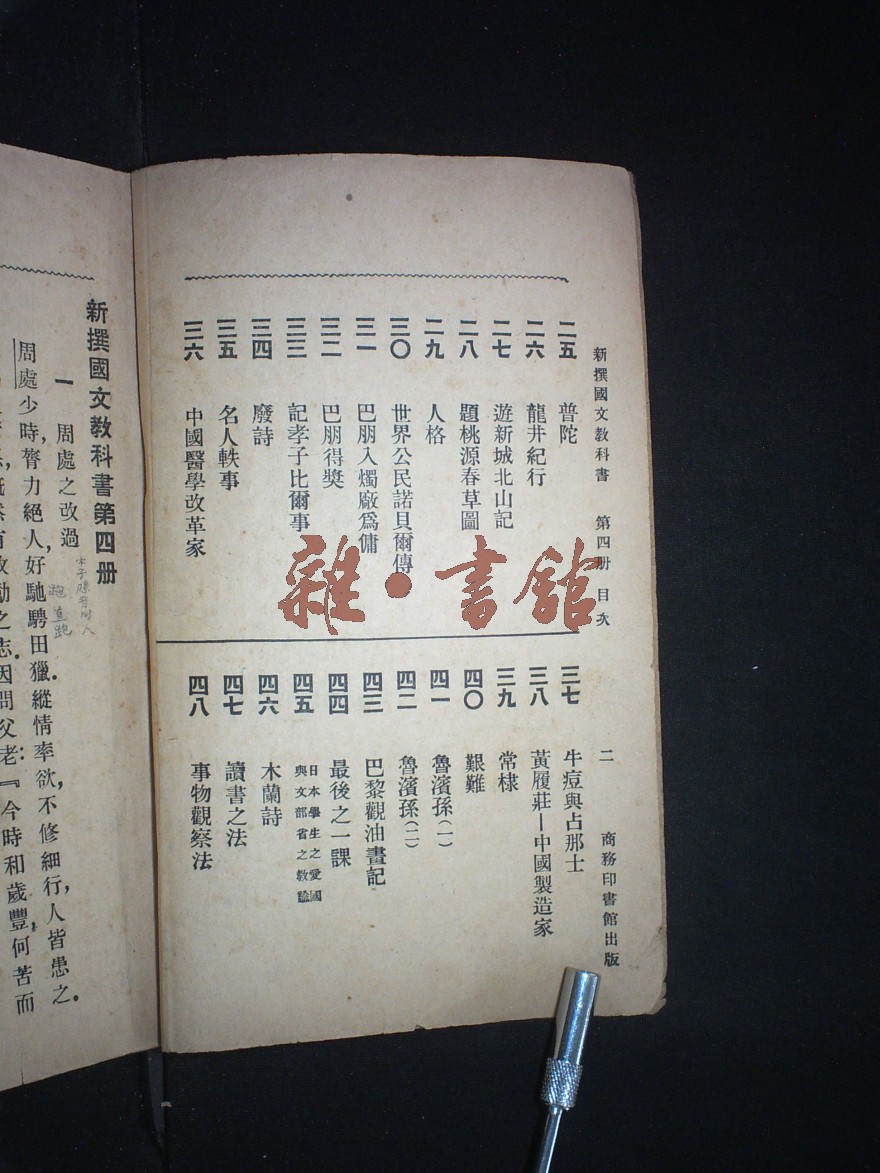 新撰國文教科書 第四册 目次
二 商務印書館出版
二五 普陀
二六 龍井紀行
二七 遊新城北山記
二八 題桃源春草圖
二九 人格
三〇 世界公民諾貝爾傳
三一 巴朋入燭廠爲傭
三二 巴朋得獎
三三 記孝子比爾事
三四 廢詩
三五 名人軼事
三六 中國醫學改革家
三七 牛痘與占那士
三八 黃履莊—中國製造家
三九 常棣
四〇 艱難
四一 魯濱孫(一)
四二 魯濱孫(二)
四三 巴黎觀油畫記
四四 最後之一課
四五 日本學生之愛國
與文部省之教諭
四六 木蘭詩
四七 讀書之法
四八 事物觀察法
雜·書館
新撰國文教科書第四册
一 周處之改過
周處少時,膂力絕人,好馳騁田獵,縱情率欲,不修細行,人皆患之。
之志。因問父老:『今時和歲豐,何苦而